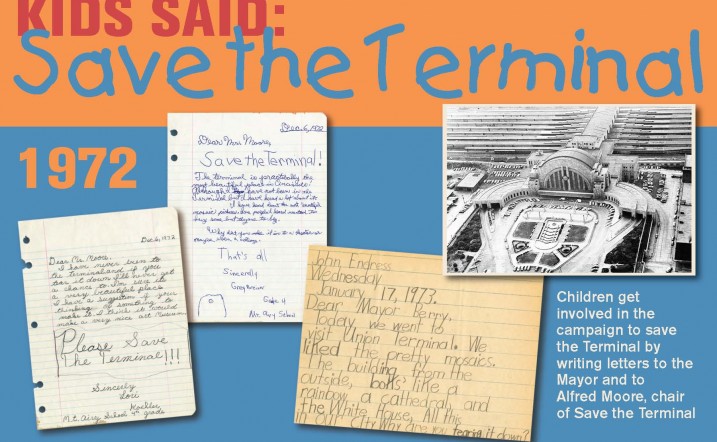 KIDS SAID:
Save the Terminal
1972
Dec. 6, 1972
Save the Terminal!
The terminal is practically the
most beautiful place in
I have not been in the
Terminal but I have heard a lot about it
I have heard about the
mosaic pictures
Why don't you make it in to a
That's all
Sincerely
Greg Brown
Grade 4
Mt. Airy School
Dec 6, 1972
Dear Mr. Moore,
I have never been to
the terminal and if you
tear it down I'll never get
a chance to. I'm sure its
a very beautiful place.
I have a suggestion if your
thinking of something to
make it. I think it would
make a very nice art Museum.
Please Save
The Terminal!!!
Sincerly
Lori
Koehler
Mt. Airy School 4th grade
John Endress
Wednesday
January 17, 1973.
Dear Mayor Berry,
Today we went to
visit Union Terminal. We
liked the pretty mosaics.
The building from the
outside, looks like a
rainbow, a cathedral, and
the White House. All this
in our city. Why are you tearing it down?
Children get
involved in the
campaign to save
the Terminal by
writing letters to the
Mayor and to
Alfred Moore, chair
of Save the Terminal